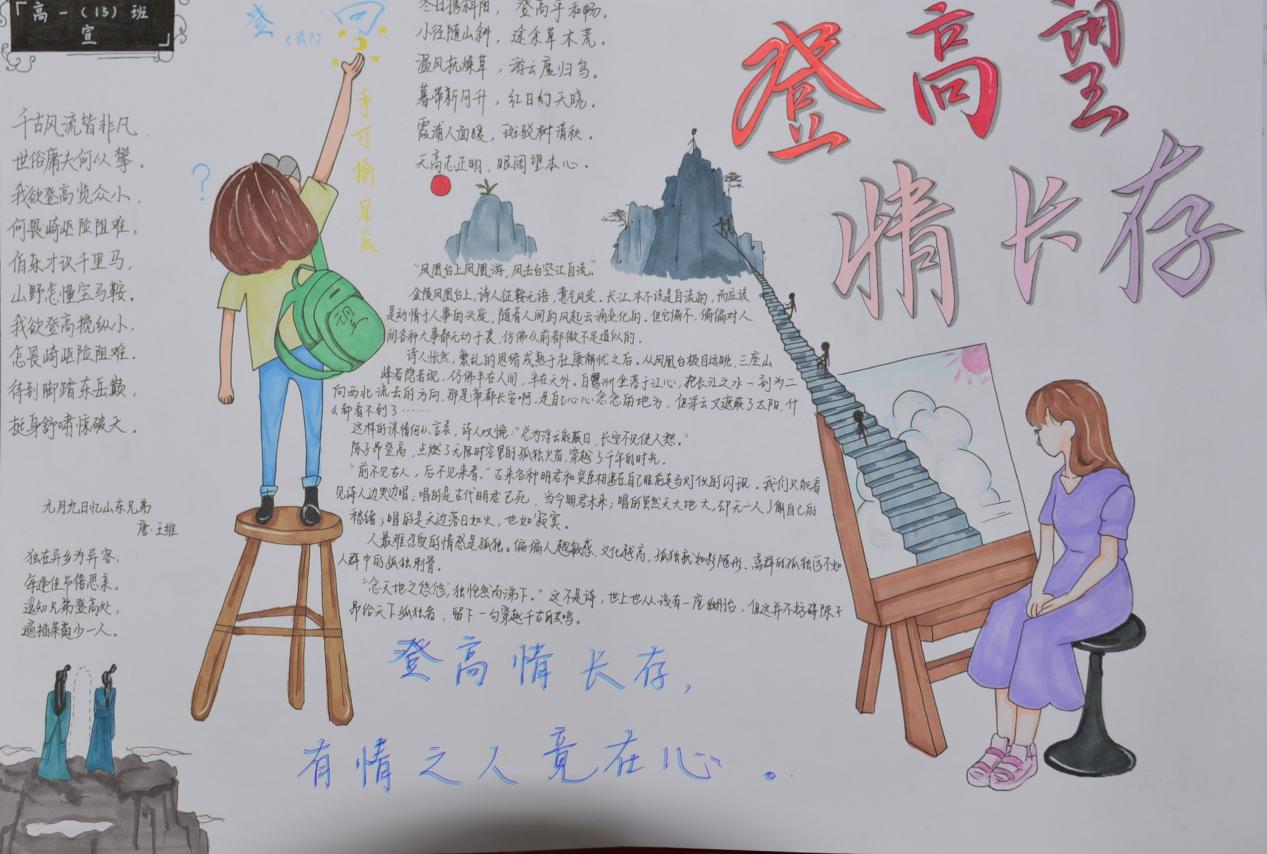 高一（15）班
宣
登高望
情长存
千古风流皆非凡，
世俗庸夫何从攀。
我欲登高览众小，
何畏崎岖险阻难。
伯乐才识千里马，
山野怎懂宝马鞍。
我欲登高揽纵小，
怎畏崎岖险阻难。
待到脚踏东岳巅，
挺身舒啸惊破天。
九月九日忆山东兄弟
唐·王维
独在异乡为异客，
每逢佳节倍思亲。
遥知兄弟登高处，
遍插茱萸少一人。
登
？
手可摘星辰
望
冬日携斜阳， 登高乎和畅。
小径随山斜， 途余草木荒。
温风抚燥草， 游云度归鸟。
暮带新月升， 红日幻天晓。
霞浦人面暖， 斑驳树清秋。
天高志正明， 眼阔望本心。
“凤凰台上凤凰游，凤去台空江自流。”
金陵凤凰台上，诗人征鞍无语，意气风发。长江本不该是自流的，而应该
是动情于人事的兴废，随着人间的风起云涌变化的。但它偏不，偏偏对人
间各种大事都无动于衷，仿佛从前都做不足道似的。
诗人怅然，繁乱的思绪成熟于杜康解忧之后。从凤凰台极目远眺，三座山
峰若隐若现，仿佛半在人间，半在天外。白鹭洲坐落于江心，把长江之水一割为二
向西北流去的方向，那是帝都长安啊，是自己心心念念的地方，但浮云又遮蔽了太阳，什
么都看不到了……
这样的深情何以言表，诗人叹惋：“总为浮云能蔽日，长安不见使人愁。”
陈子昂登高，点燃了无限时空里的孤独火者，穿越了千年的时光。
“前不见古人，后不见来者。”古来各种明君和贤臣相遇在自己眼前走马灯似的闪现。我们只能看
见诗人边哭边唱：唱的是古代明君已死，当今明君未来；唱的是天大地大，却无一人了解自己的
愁绪；唱的是天边落日如火，也如寂寞。
人最难忍受的情感是孤独。偏偏人越敏感，文化越高，孤独就如影随形，高群的孤独远不如
人群中的孤独刺骨。
“念天地之悠悠，独怆然而涕下。”这不是诗，世上也从没有一度翻治，但这并不妨碍陈子
昂给天下孤独者，留下一句穿越千古的共鸣。
登高情长存，
有情之人竟在心。